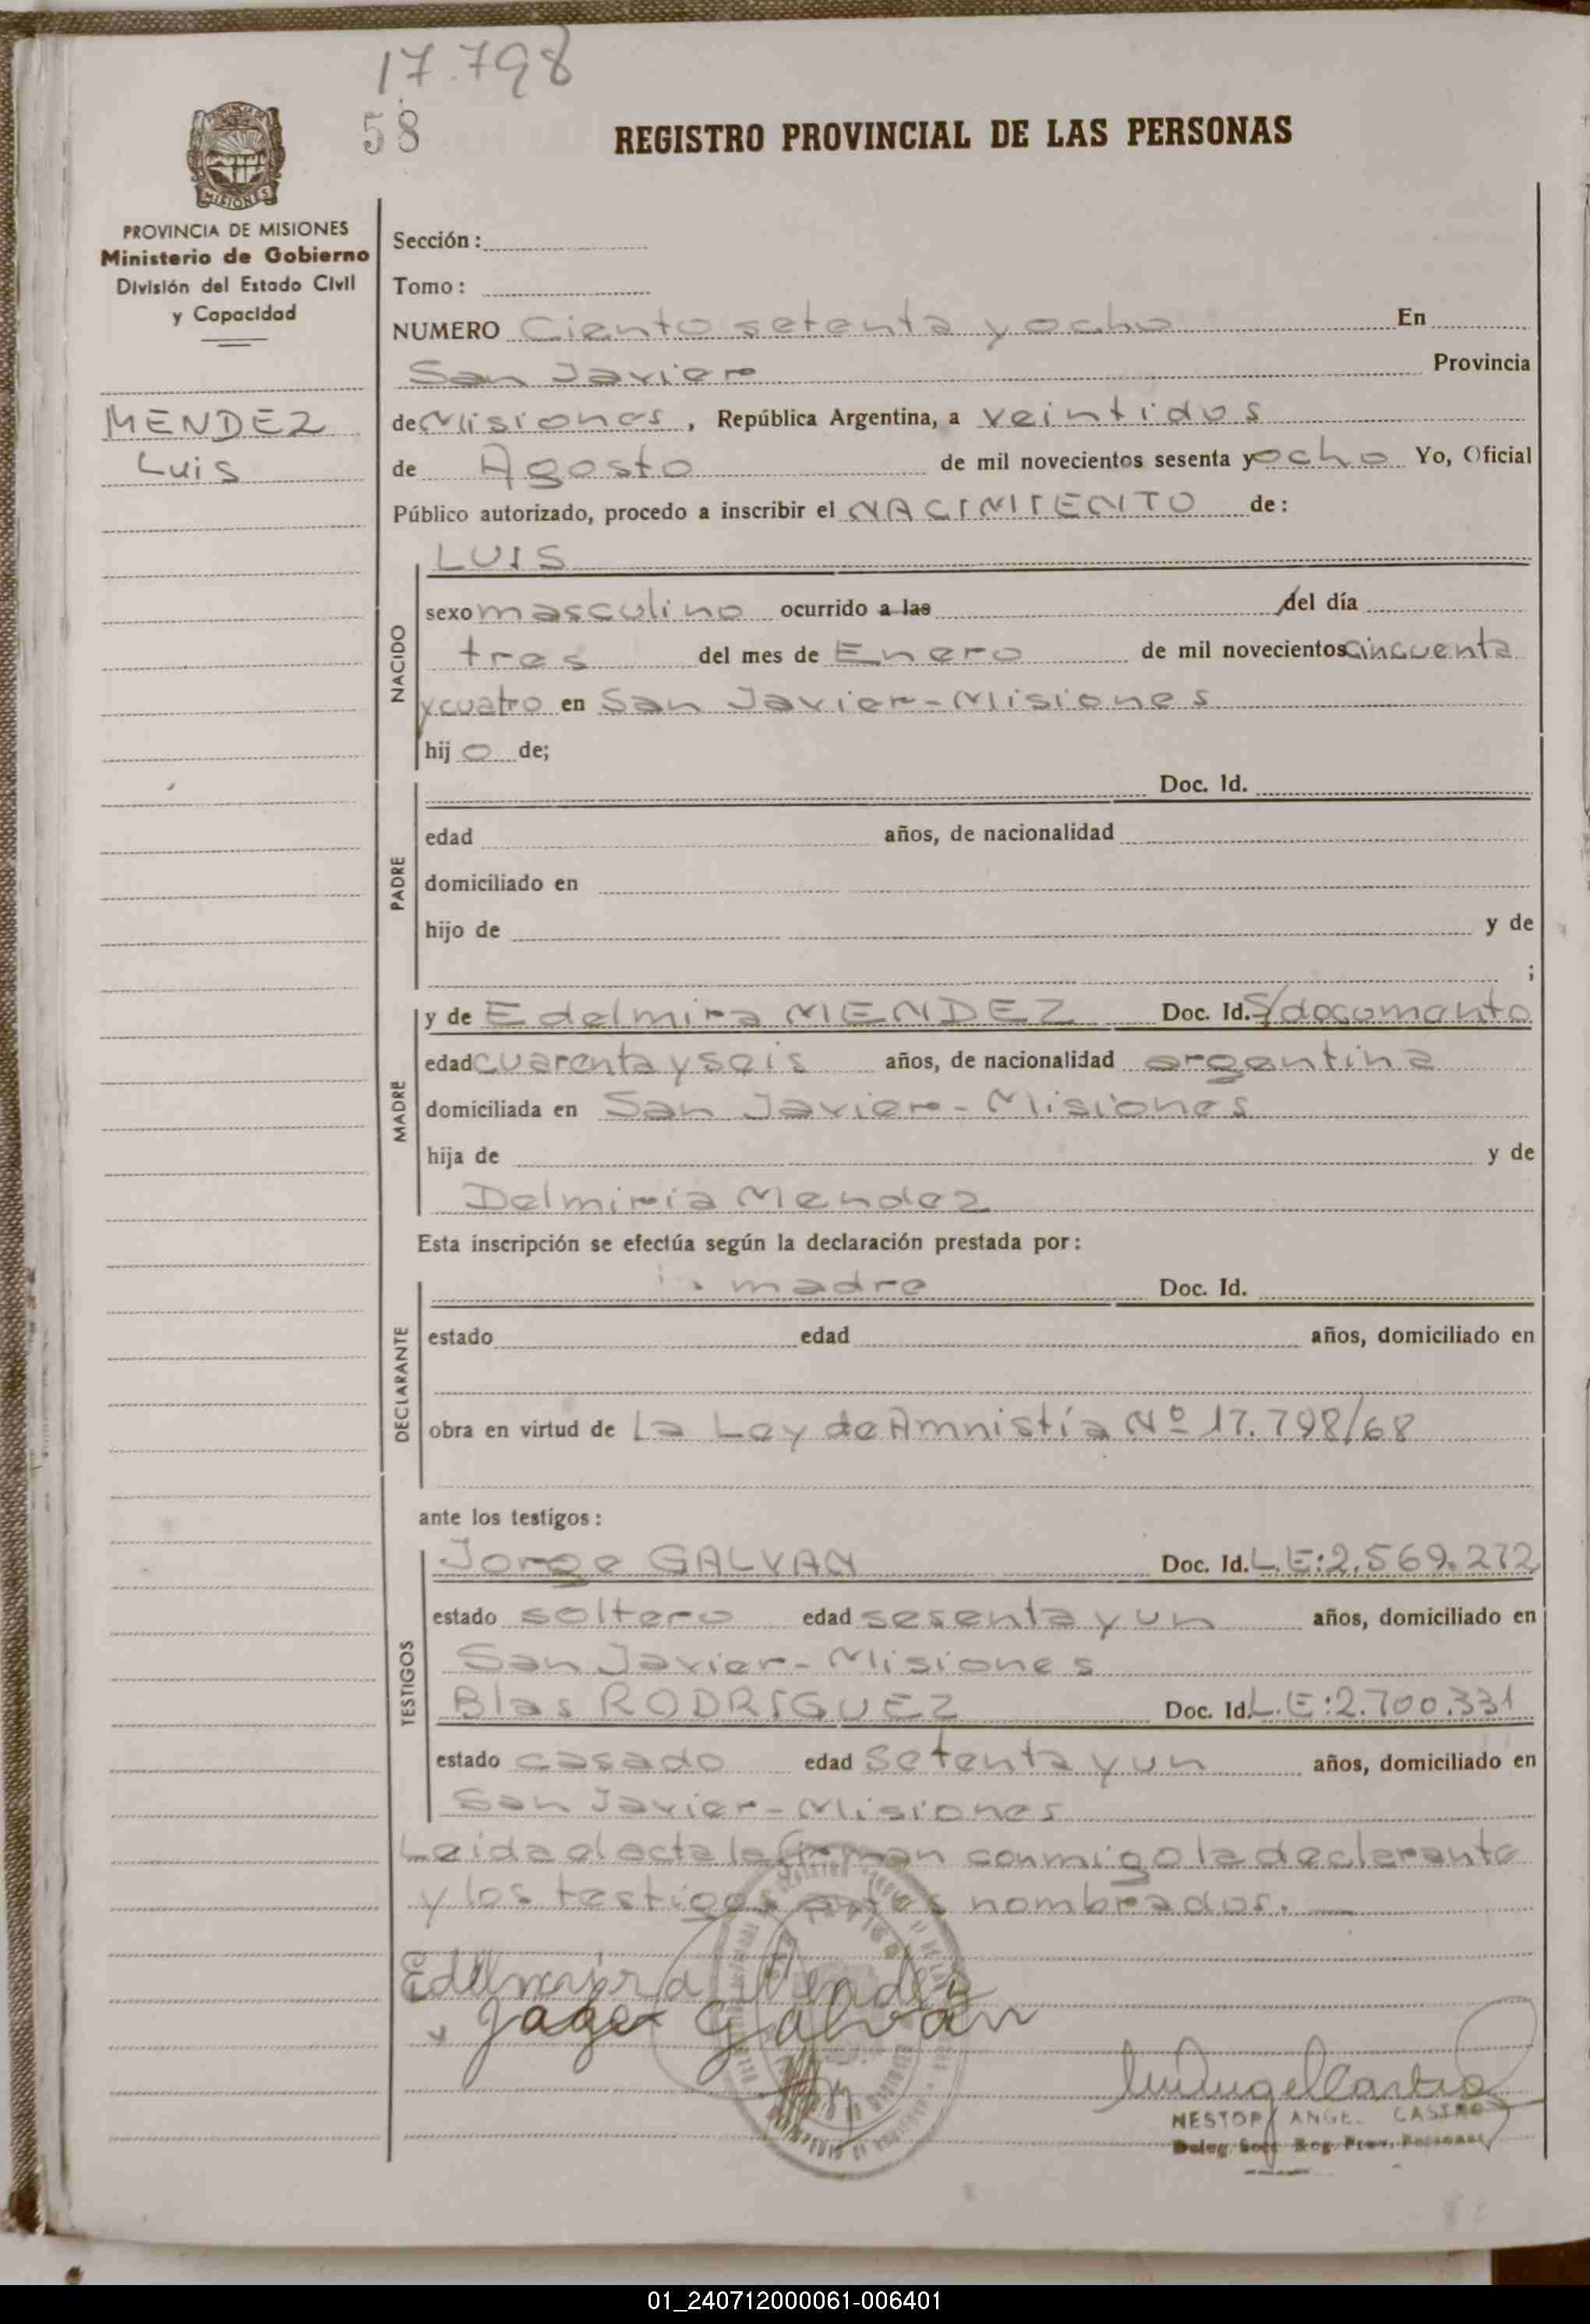 17.798
58
REGISTRO PROVINCIAL DE LAS PERSONAS
MISIONES
PROVINCIA DE MISIONES
Ministerio de Gobierno
División del Estado Civil
y Capacidad
MENDEZ
Luis
Sección:
Tomo:
NUMERO Ciento setenta y ocho En
San Javier Provincia
de Misiones, República Argentina, a veintidos
de Agosto de mil novecientos sesenta y ocho Yo, Oficial
Público autorizado, procedo a inscribir el NACIMIENTO de:
NACIDO
LUIS
sexo masculino ocurrido a las del día
tres del mes de Enero de mil novecientos cincuenta
y cuatro en San Javier-Misiones
hijo de;
PADRE
Doc. Id.
edad años, de nacionalidad
domiciliado en
hijo de y de
;
MADRE
y de Edelmira MENDEZ Doc. Id. S/documento
edad cuarenta y seis años, de nacionalidad argentina
domiciliada en San Javier-Misiones
hija de y de
Delmiria Mendez
Esta inscripción se efectúa según la declaración prestada por:
DECLARANTE
madre Doc. Id.
estado edad años, domiciliado en
obra en virtud de la Ley de Amnistía Nº 17.798/68
ante los testigos:
TESTIGOS
Jorge GALVAN Doc. Id. L.E:2.569.272
estado soltero edad sesenta y un años, domiciliado en
San Javier-Misiones
Blas RODRIGUEZ Doc. Id. L.E:2.700.331
estado casado edad setenta y un años, domiciliado en
San Javier-Misiones
Leida el acta la firman conmigo la declarante
y los testigos antes nombrados.
Edelmira Mendez
Jorge Galvan
NESTOR ANGEL CASTRO
Deleg. Secc. Reg. Prov. Personas
01_240712000061-006401